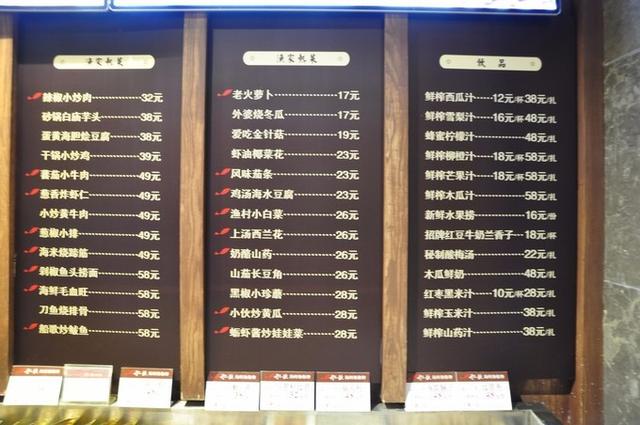 渔家热菜
辣椒小炒肉 32元
砂锅白庙芋头 38元
蛋黄海胆烩豆腐 38元
干锅小炒鸡 39元
蕃茄小牛肉 49元
葱香炸虾仁 49元
小炒黄牛肉 49元
葱椒小排 49元
海米烧蹄筋 49元
剁椒鱼头捞面 58元
海鲜毛血旺 58元
刀鱼烧排骨 58元
船歌炒鲅鱼 58元
渔家热菜
老火萝卜 17元
外婆烧冬瓜 17元
爱吃金针菇 19元
虾油椰菜花 23元
风味茄条 23元
鸡汤海水豆腐 23元
渔村小白菜 26元
上汤西兰花 26元
奶酪山药 26元
山茄长豆角 26元
黑椒小珍蘑 28元
小伙炒黄瓜 28元
蛎虾酱炒娃娃菜 28元
饮品
鲜榨西瓜汁 12元/杯 38元/扎
鲜榨雪梨汁 16元/杯 48元/扎
蜂蜜柠檬汁 48元/扎
鲜榨柳橙汁 18元/杯 58元/扎
鲜榨芒果汁 18元/杯 58元/扎
鲜榨木瓜汁 58元/扎
新鲜水果捞 16元/份
招牌红豆牛奶兰香子 18元/杯
秘制酸梅汤 22元/扎
木瓜鲜奶 48元/扎
红枣黑米汁 10元/杯 28元/扎
鲜榨玉米汁 38元/扎
鲜榨山药汁 38元/扎